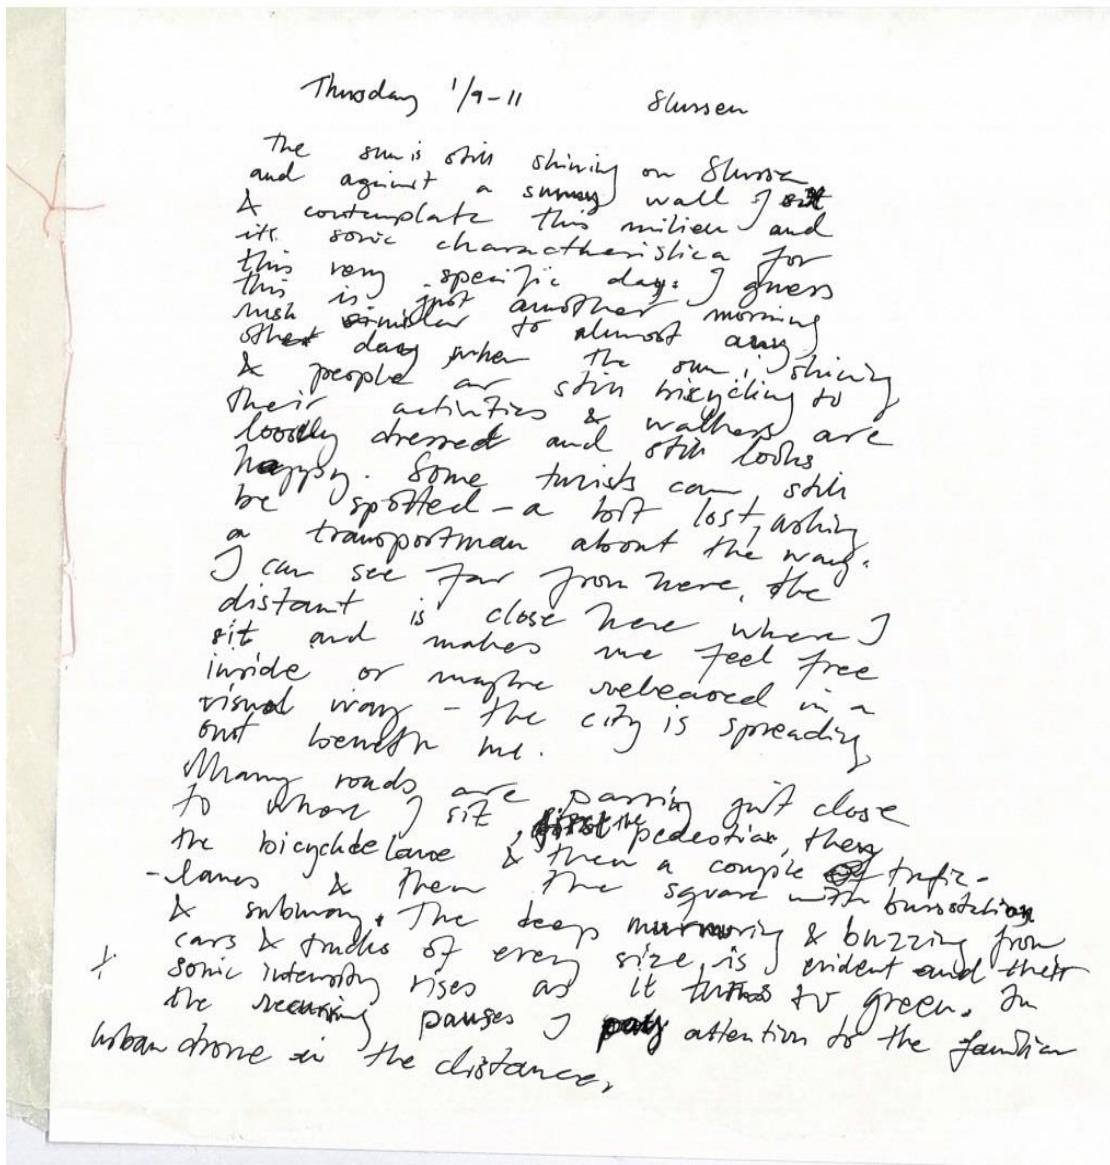 Thursday 1/9-11 Slussen
The sun is still shining on Slussen
and against a sunny wall I sit
& contemplate this milieu and
its sonic charactheristica for
this very specific day. I guess
this is just another morning
rush similar to almost any
other day when the sun is shining
& people are still bicycling to
their activities & walkers are
loosely dressed and still looks
happy. Some turists can still
be spotted – a bit lost, asking
a transportman about the way.
I can see far from here, the
distant is close here where I
sit and makes me feel free
inside or maybe released in a
visual way – the city is spreading
out beneth me.
Many roads are passing just close
to where I sit, first the pedestian, then
the bicycle lane & then a couple of trafic-
-lanes & then the square with busstation
& subway. The deep murmuring & buzzing from
cars & trucks of every size is evident and their
sonic intensity rises as it turns to green. In
the recurring pauses I pay attention to the familiar
urban drone in the distance.